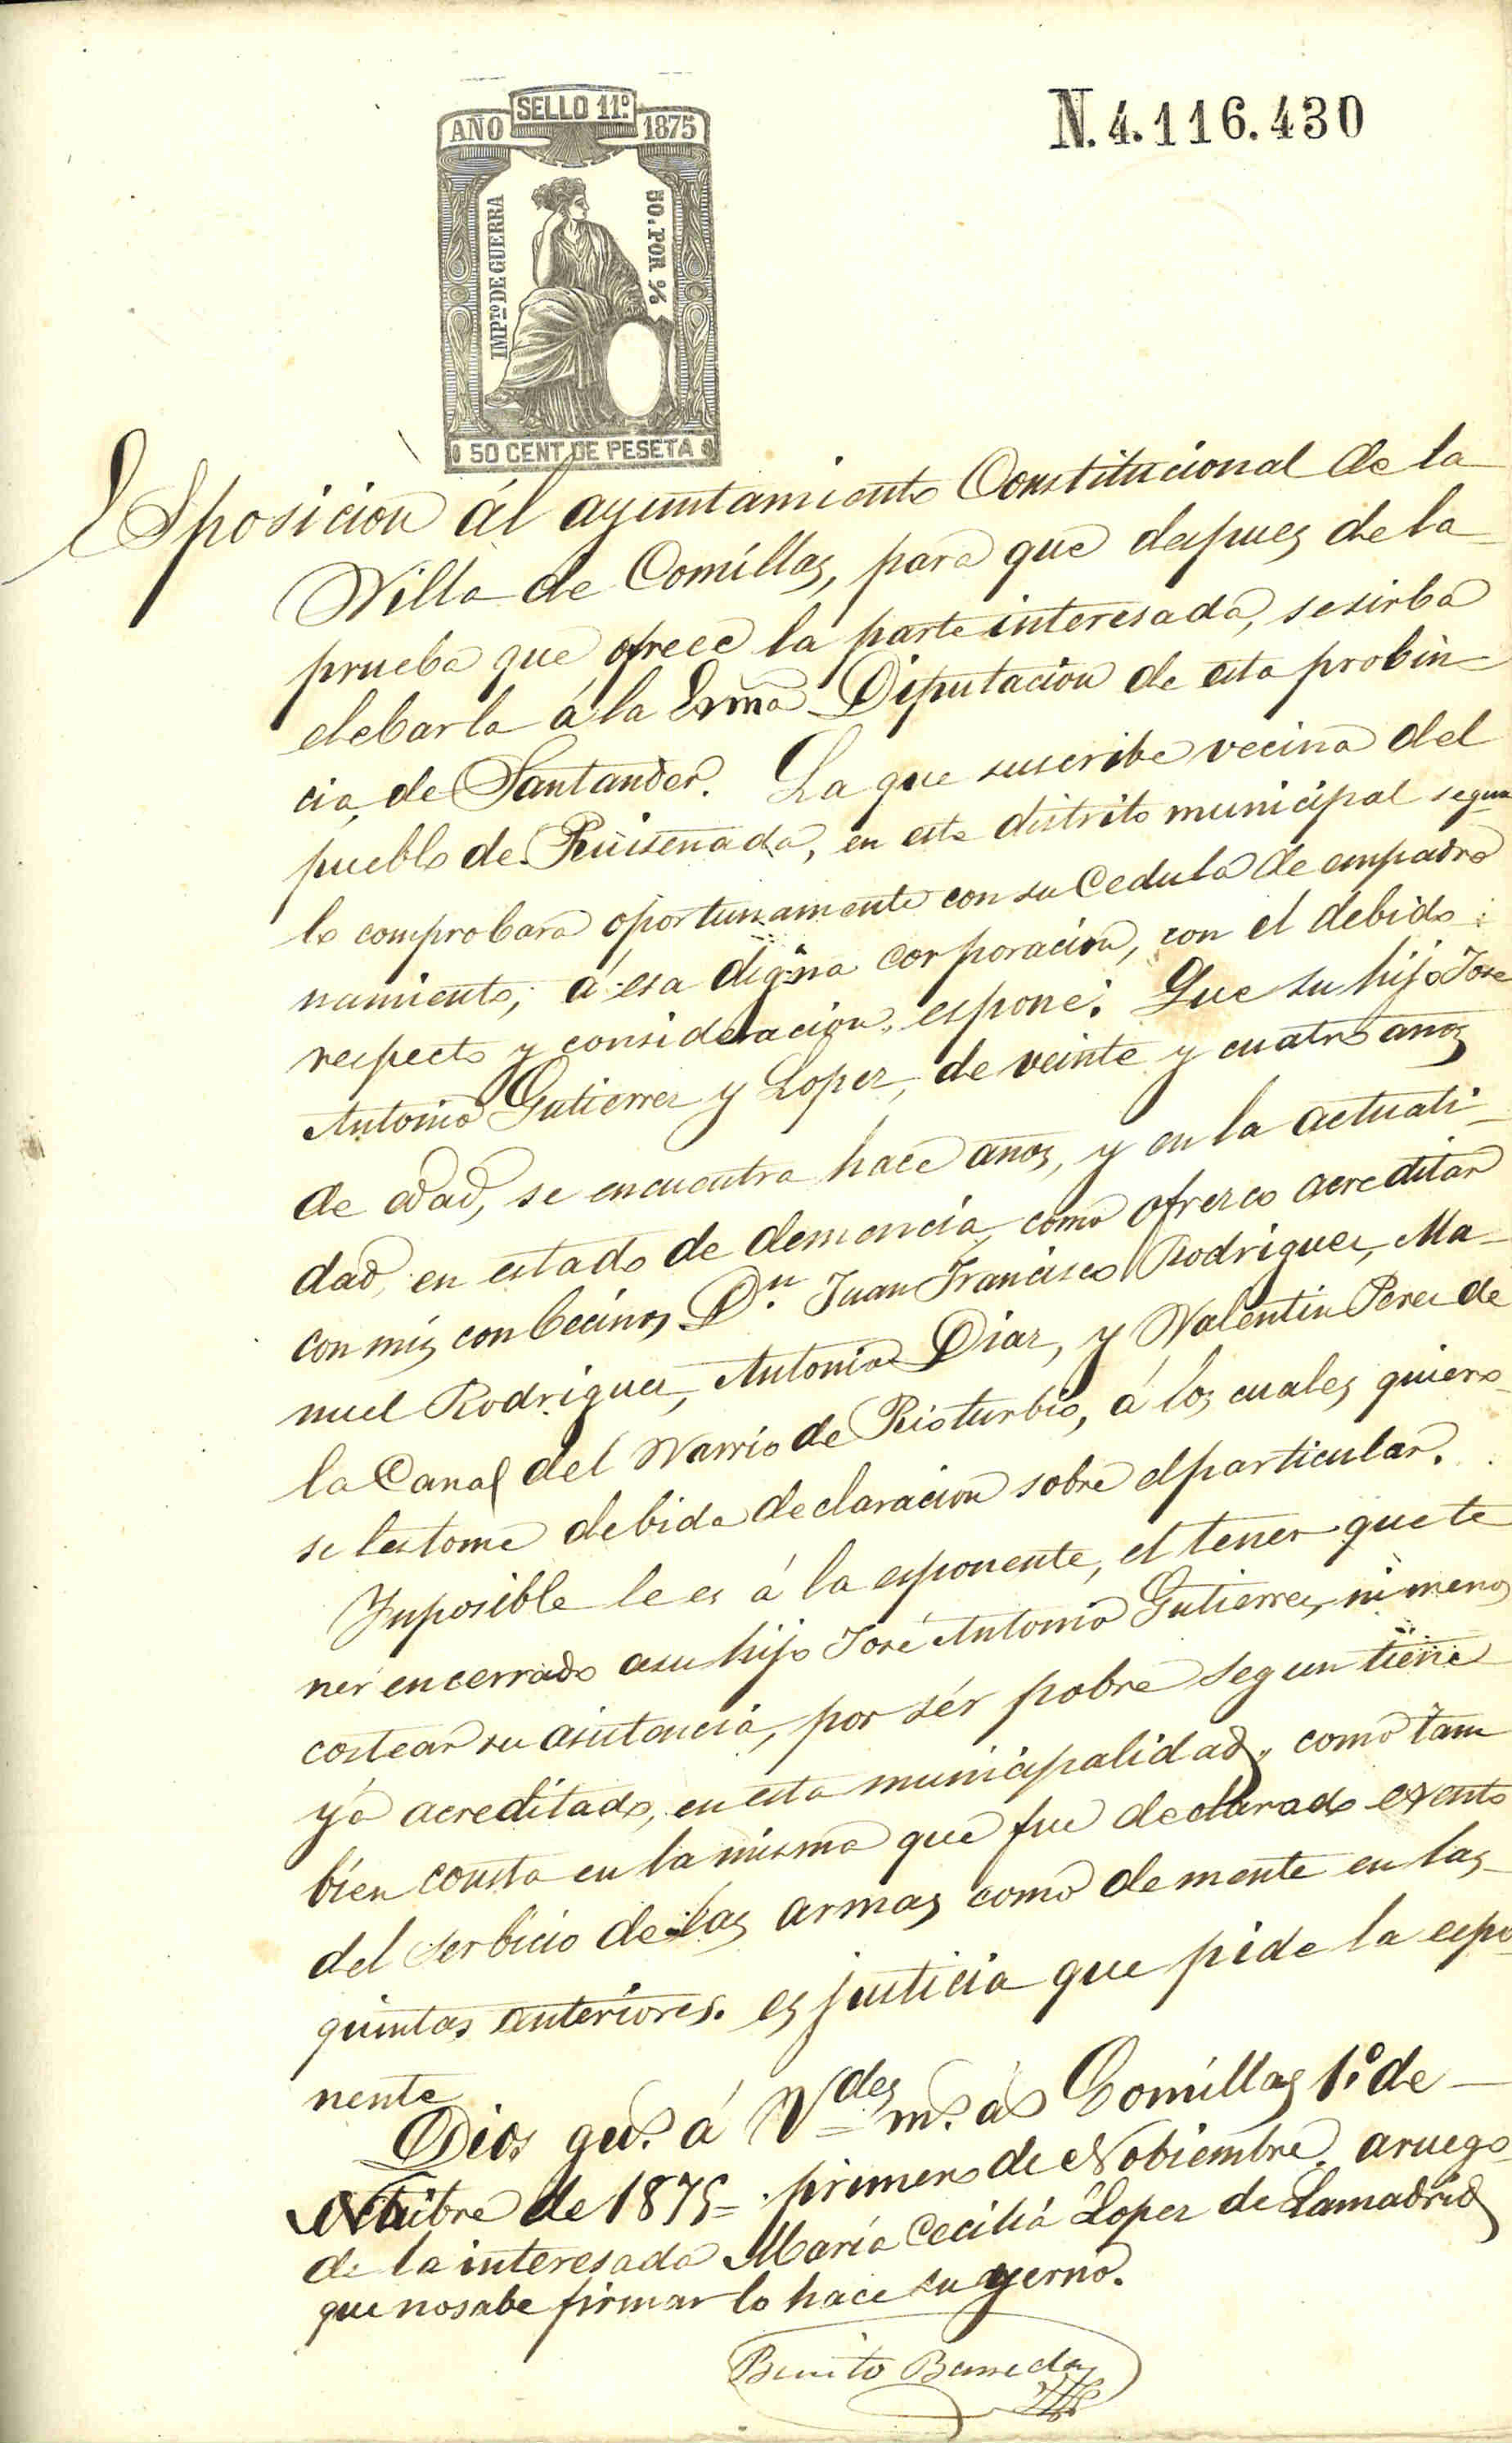 SELLO 11º
AÑO 1875
IMPTO DE GUERRA
50. POR %
50 CENT DE PESETA
N. 4.116.430
Esposicion ál ayuntamiento Constitucional de la
Villa de Comillas, para que despues de la
prueba que ofrece la parte interesada, se sirba
elebarla á la Exma Diputacion de esta probin-
cia de Santander. La que suscribe vecina del
pueblo de Ruiseñada, en este distrito municipal segun
lo comprobara oportunamente con su Cedula de empadro
namiento, á esa digna corporacion, con el debido
respecto y consideracion, espone: Que su hijo Jose
Antonio Gutierrez y Lopez, de veinte y cuatro años
de edad, se encuentra hace años, y en la actuali-
dad, en estado de demencia, como ofrezco acreditar
con mis conbecinos Dn. Juan Francisco Rodriguez, Ma-
nuel Rodriguez, Antonio Diaz, y Valentin Perez de
la Canal del Varrio de Rioturbio, á los cuales quiero
se les tome debida declaracion sobre el particular.
Inposible le es á la esponente, el tener que te
ner encerrado asu hijo José Antonio Gutierrez, ni menos
costear su asistencia, por sér pobre segun tiene
yá acreditado, en esta municipalidad, como tam
bien consta en la misma que fue declarado exento
del serbicio de las armas como demente en las
quintas anteriores. es justicia que pide la espo-
nente
Dios gue. á Vdes ms. as Comillas 1.º de
Octubre de 1875= primero de Nobiembre. aruego
de la interesada María Cecilia Lopez de Lamadrid
que no sabe firmar lo hace su yerno.
Benito Barreda